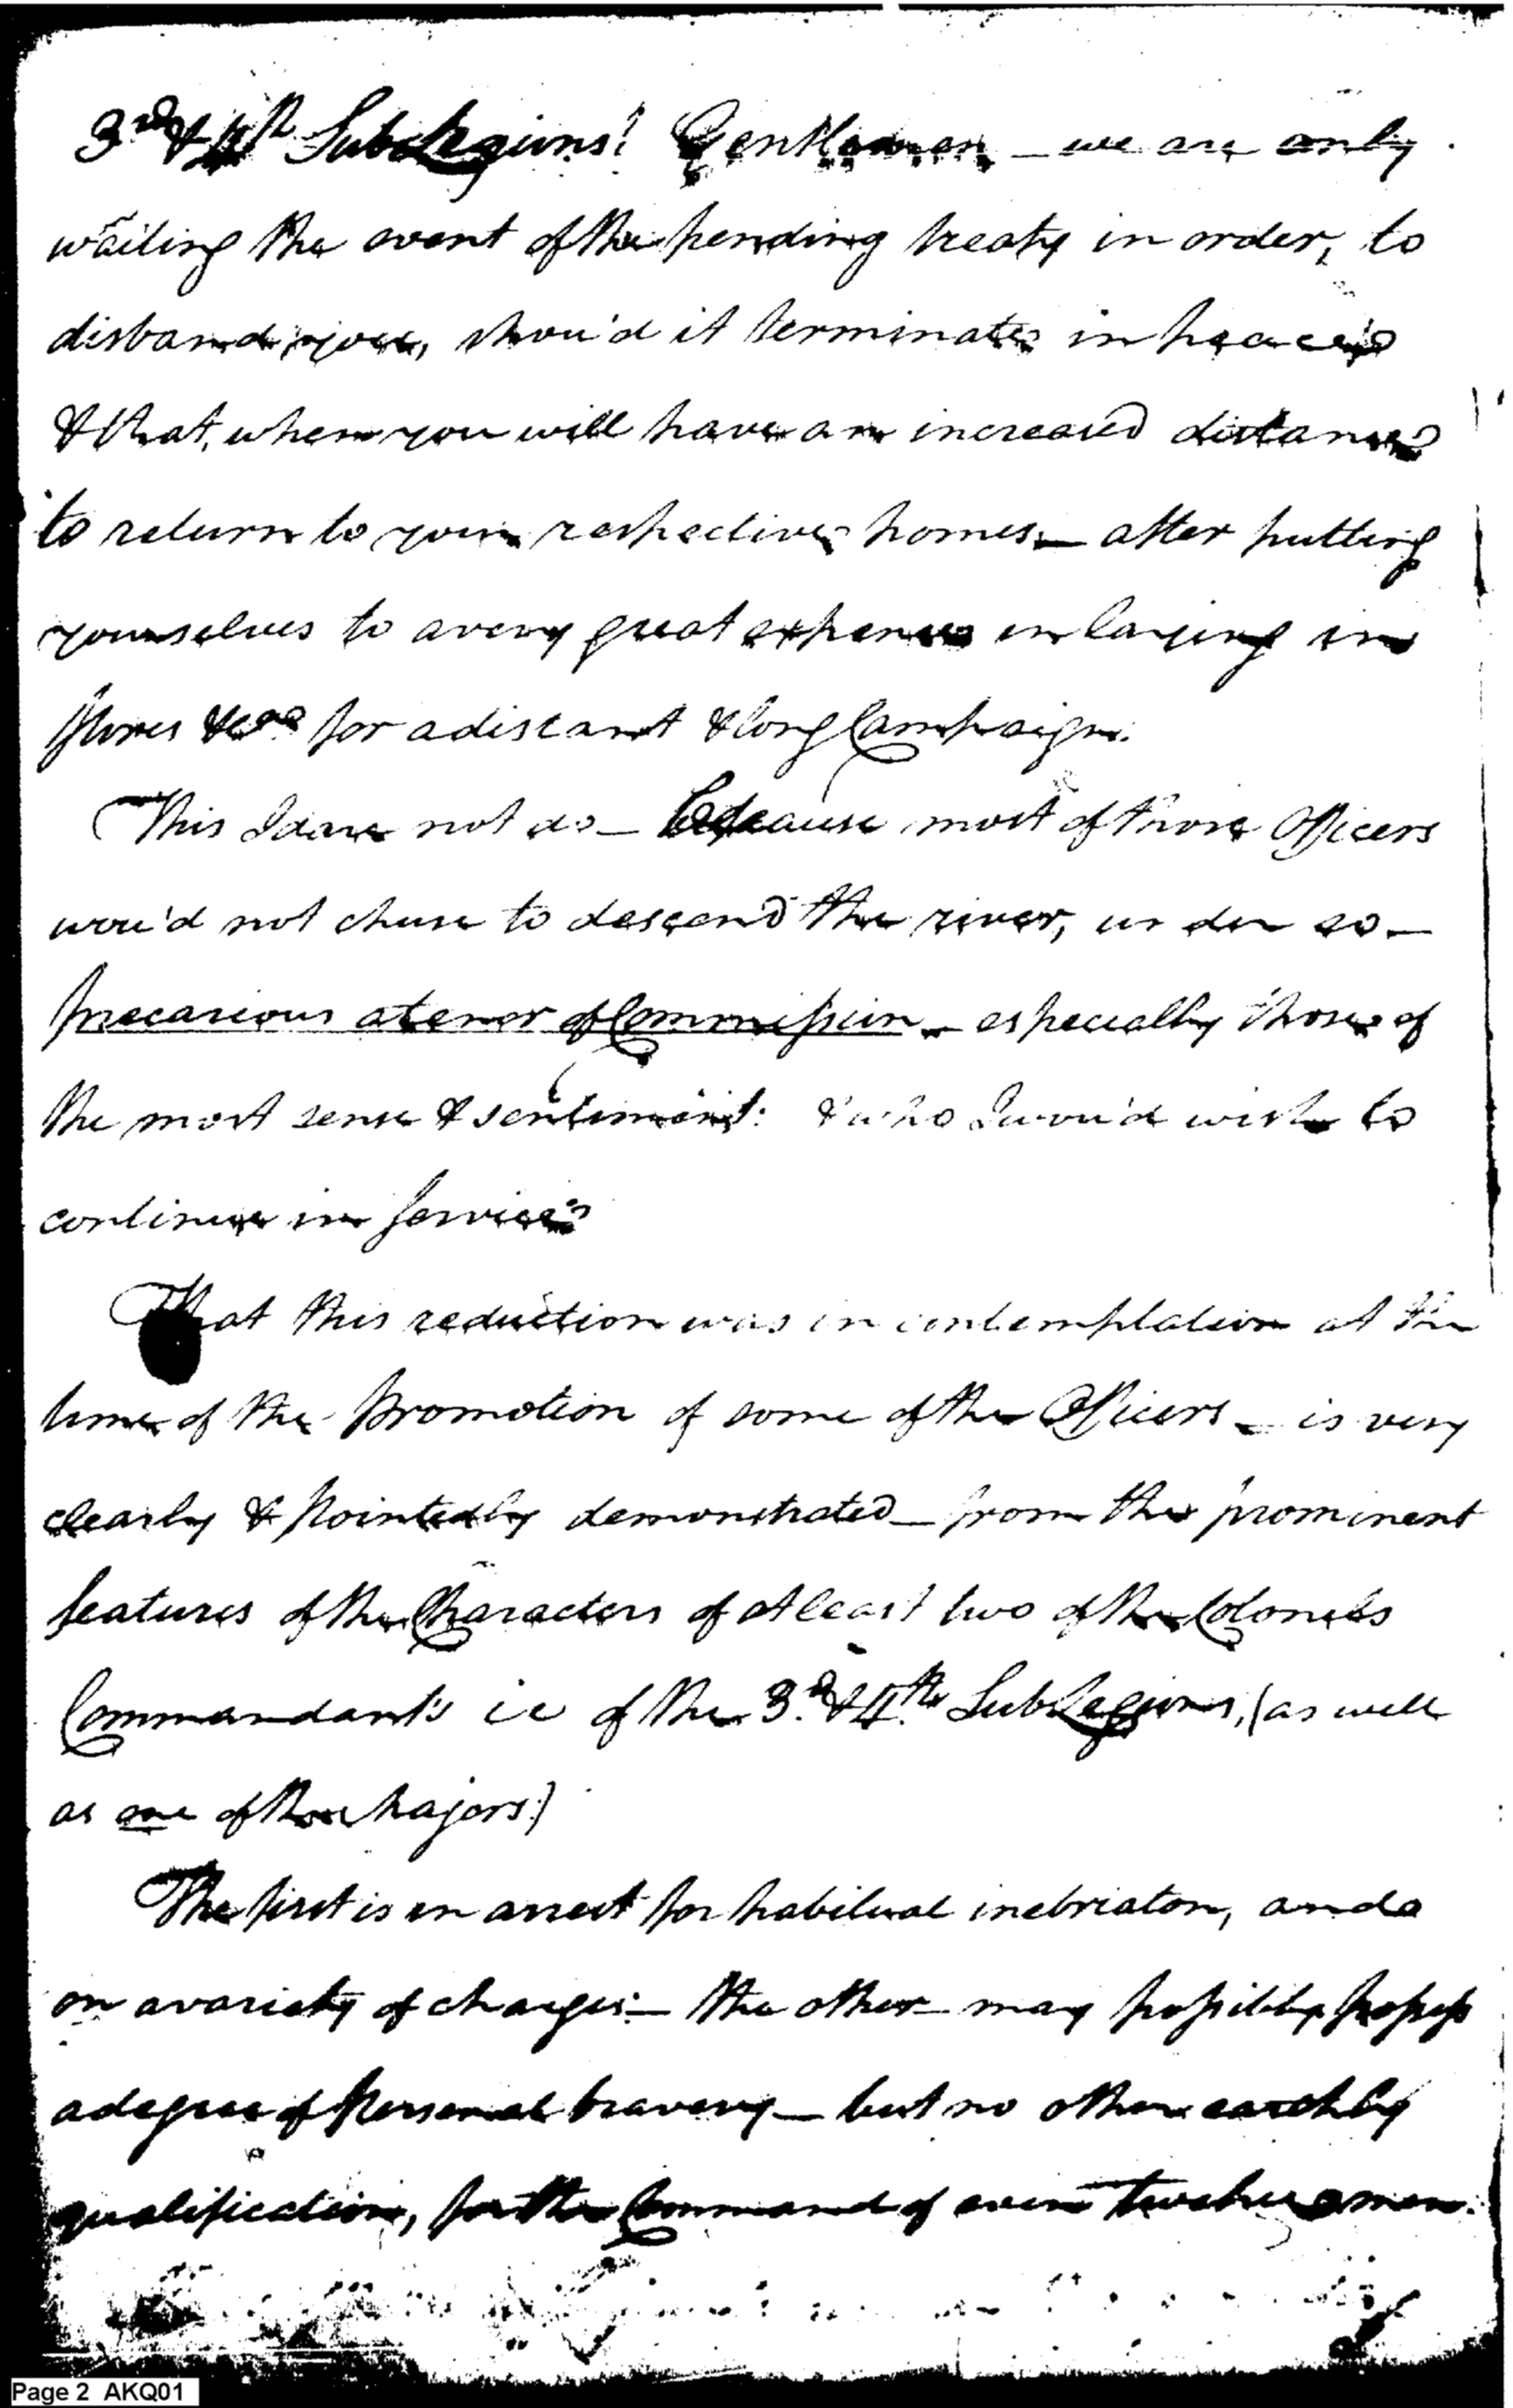 3rd & 4th Sub Legions! Gentlemen – we are only
waiting the event of the pending treaty in order, to
disband you, shou'd it terminate in peace
& that, when you will have an increased distance
to return to your respective homes – after putting
yourselves to a very great expense in laying in
stores &c for a distant & long Campaign.
This I dare not do – because most of those Officers
wou'd not chuse to descend the river, under so –
precarious a tenor of Commission – especially those of
the most sense & sentiment: & who I wou'd wish to
continue in service
That this reduction was in contemplation at the
time of the promotion of some of the Officers – is very
clearly & pointedly demonstrated – from the prominent
features of the Characters of at least two of the Colonels
Commandant's ie of the 3d. & 4th. Sub Legions, (as well
as one of the Majors:)
The first is in arrest for habitual inebriaton, and
on a variety of charges: – the other may possibly possess
a degree of personal bravery – but no other earthly
qualification, for the Command of even twelve men.
Page 2 AKQ01